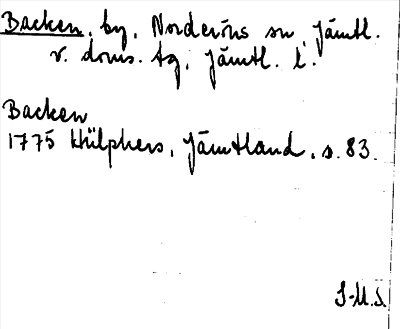 Backen, by, Norderöns sn, Jämtl.
v. doms. tg, Jämtl. l.
Backen
1775 Hülphers, Jämtland, s. 83.